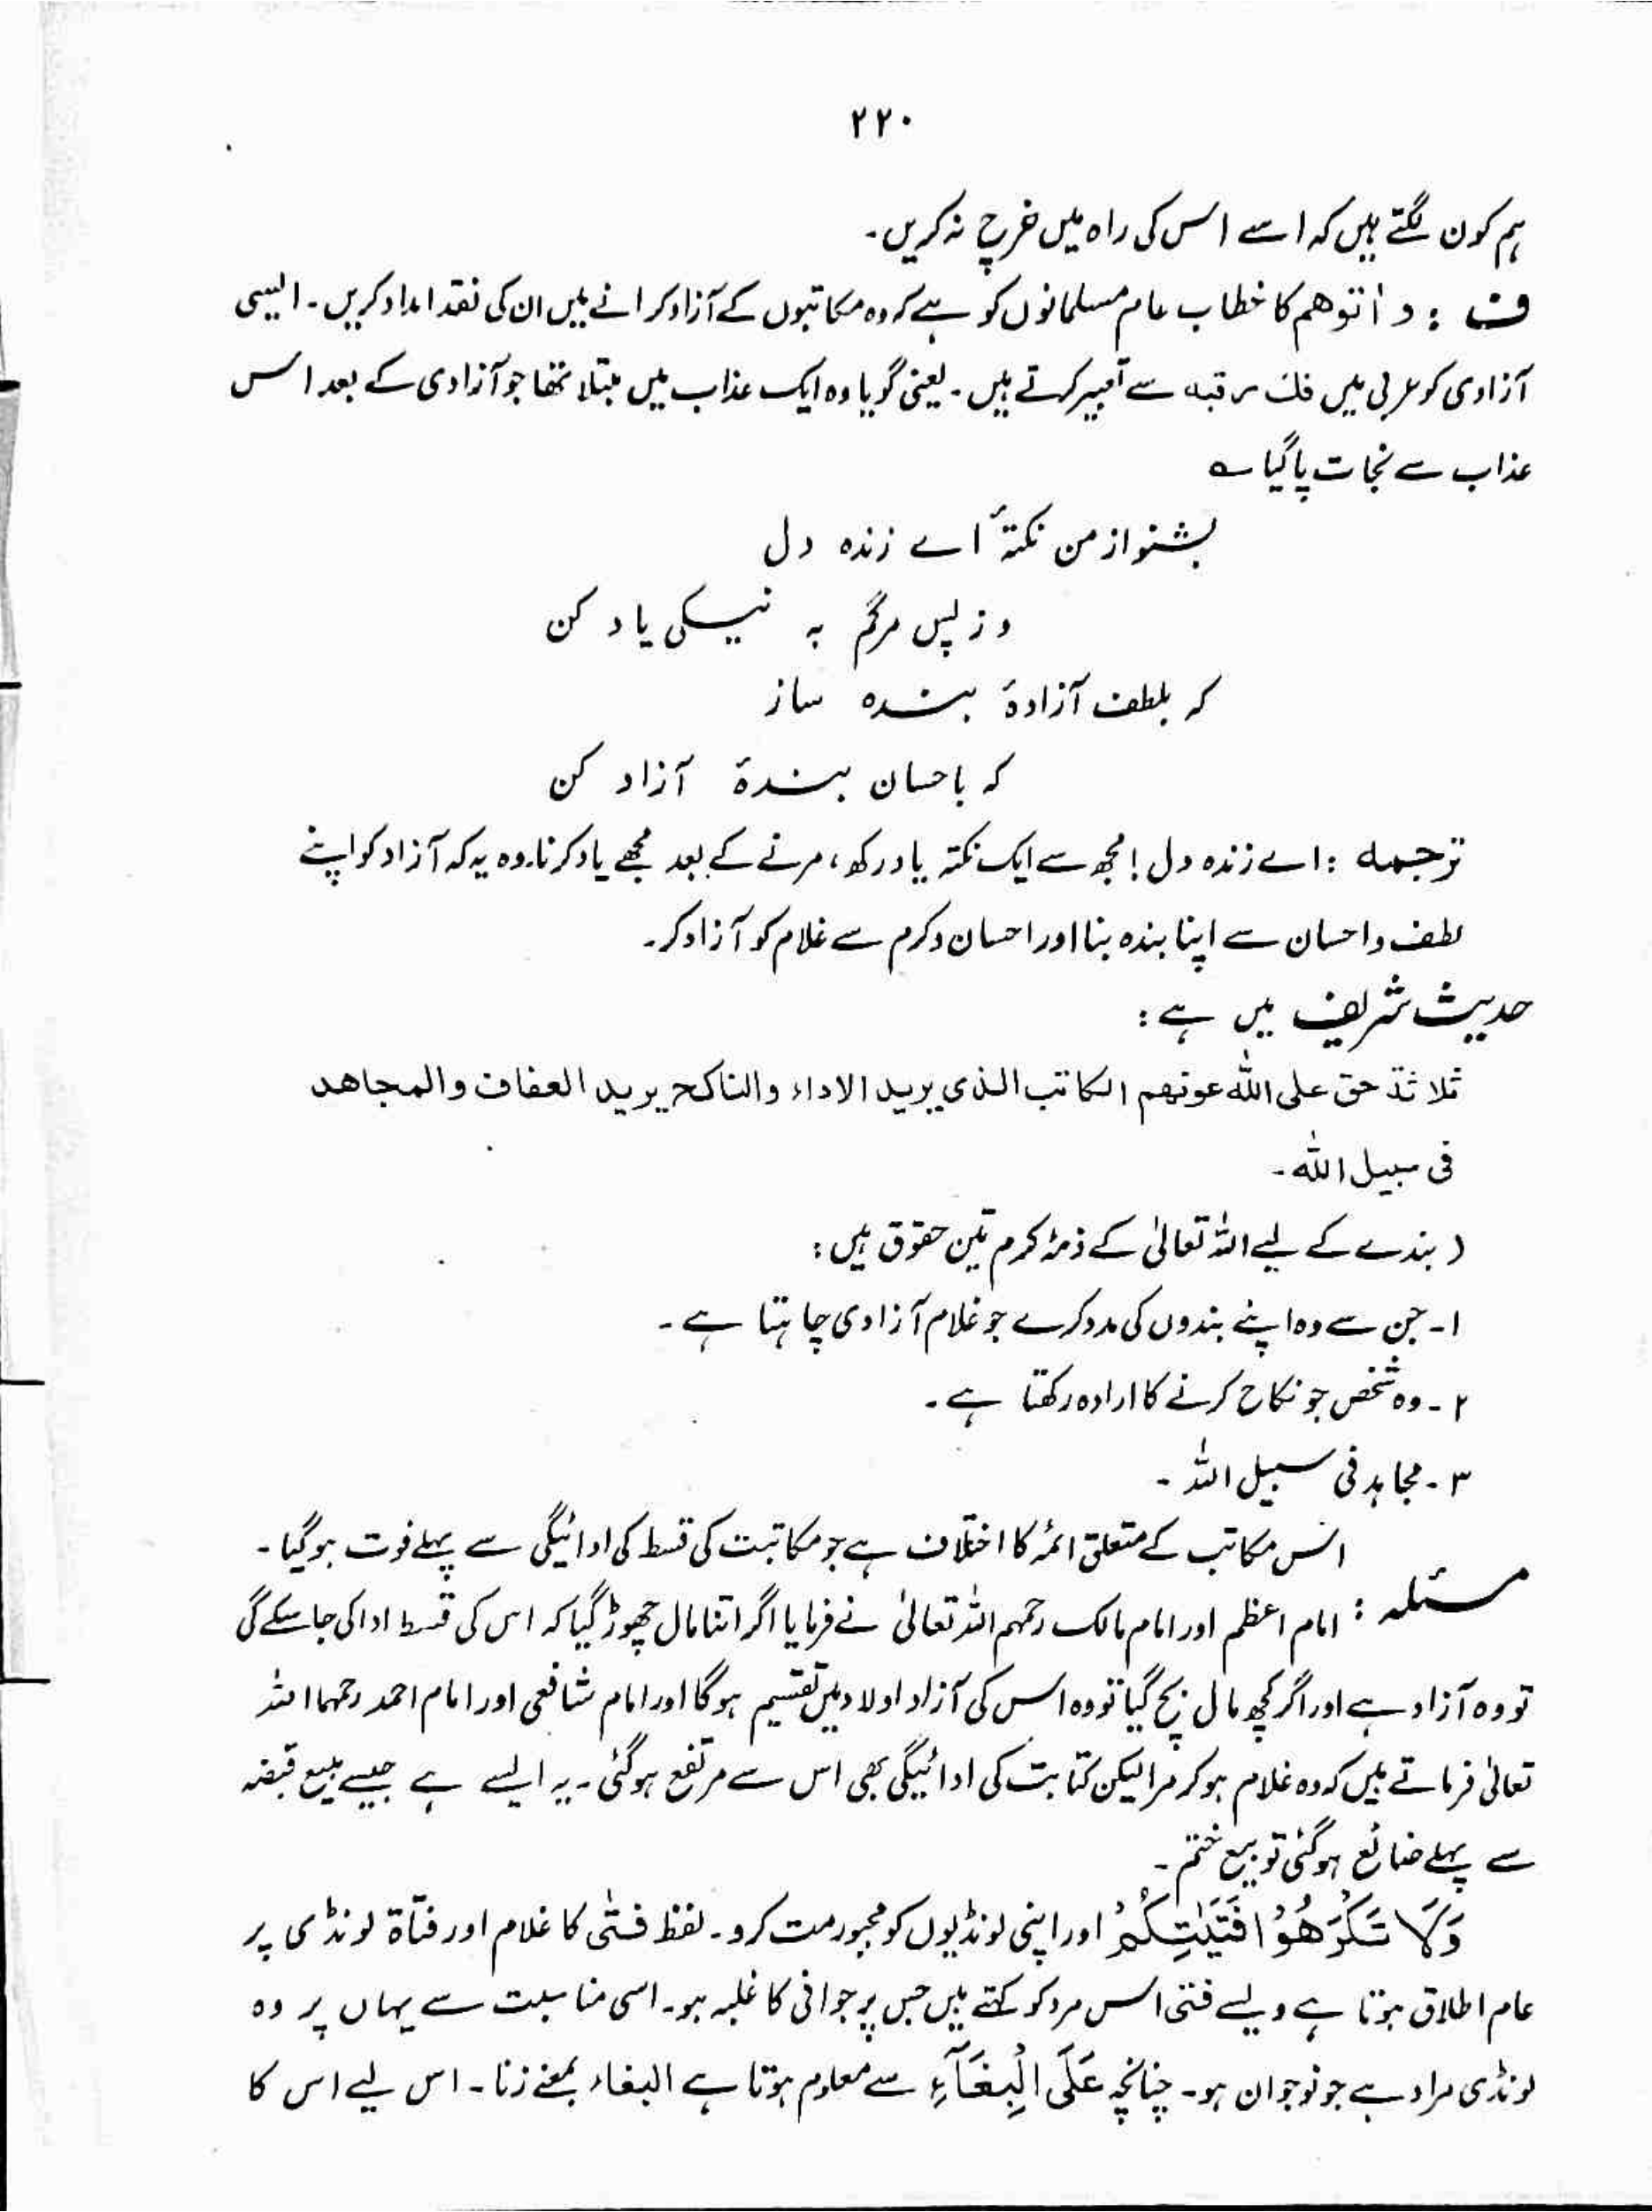 ۲۲۰
ہم کون لگتے ہیں کہ اسے اس کی راہ میں خرچ نہ کریں۔
ف : و اٰتوھم کا خطاب عام مسلمانوں کو ہے کہ وہ مکاتبوں کے آزاد کرانے میں ان کی نقد امداد کریں۔ ایسی
آزادی کو عربی میں فك رقبه سے تعبیر کرتے ہیں۔ یعنی گویا وہ ایک عذاب میں مبتلا تھا جو آزادی کے بعد اس
عذاب سے نجات پاگیا ؎
بشنو از من نکتۂ اے زندہ دل
وز پس مرگم بہ نیکی یاد کن
کہ بلطف آزادۂ بندہ ساز
کہ باحسان بندۂ آزاد کن
ترجمہ : اے زندہ دل! مجھ سے ایک نکتہ یاد رکھ، مرنے کے بعد مجھے یاد کرنا۔ وہ یہ کہ آزاد کو اپنے
لطف و احسان سے اپنا بندہ بنا اور احسان و کرم سے غلام کو آزاد کر۔
حدیث شریف میں ہے :
ثلاثة حق علی اللہ عونھم الکاتب الذی یرید الاداء والناکح یرید العفاف والمجاھد
فی سبیل اللہ۔
( بندے کے لیے اللہ تعالیٰ کے ذمۂ کرم تین حقوق ہیں :
۱۔ جن سے وہ اپنے بندوں کی مدد کرے جو غلام آزادی چاہتا ہے۔
۲۔ وہ شخص جو نکاح کرنے کا ارادہ رکھتا ہے۔
۳۔ مجاہد فی سبیل اللہ۔
اس مکاتب کے متعلق ائمہ کا اختلاف ہے جو مکاتبت کی قسط کی ادائیگی سے پہلے فوت ہوگیا۔
مسئلہ : امام اعظم اور امام مالک رحمہم اللہ تعالیٰ نے فرمایا اگر اتنا مال چھوڑ گیا کہ اس کی قسط ادا کی جا سکے گی
تو وہ آزاد ہے اور اگر کچھ مال بچ گیا تو وہ اس کی آزاد اولاد میں تقسیم ہوگا اور امام شافعی اور امام احمد رحمہما اللہ
تعالیٰ فرماتے ہیں کہ وہ غلام ہو کر مرا لیکن کتابت کی ادائیگی بھی اس سے مرتفع ہوگئی۔ یہ ایسے ہے جیسے مبیع قبضہ
سے پہلے ضائع ہوگئی تو بیع ختم۔
وَلَا تُكْرِهُوْا فَتَيٰتِكُمْ اور اپنی لونڈیوں کو مجبور مت کرو۔ لفظ فتٰی کا غلام اور فتاۃ لونڈی پر
عام اطلاق ہوتا ہے ویسے فتی اس مرد کو کہتے ہیں جس پر جوانی کا غلبہ ہو۔ اسی مناسبت سے یہاں پر وہ
لونڈی مراد ہے جو نوجوان ہو۔ چنانچہ عَلَى الْبِغَآءِ سے معلوم ہوتا ہے البغاء بمعنے زنا۔ اس لیے اس کا